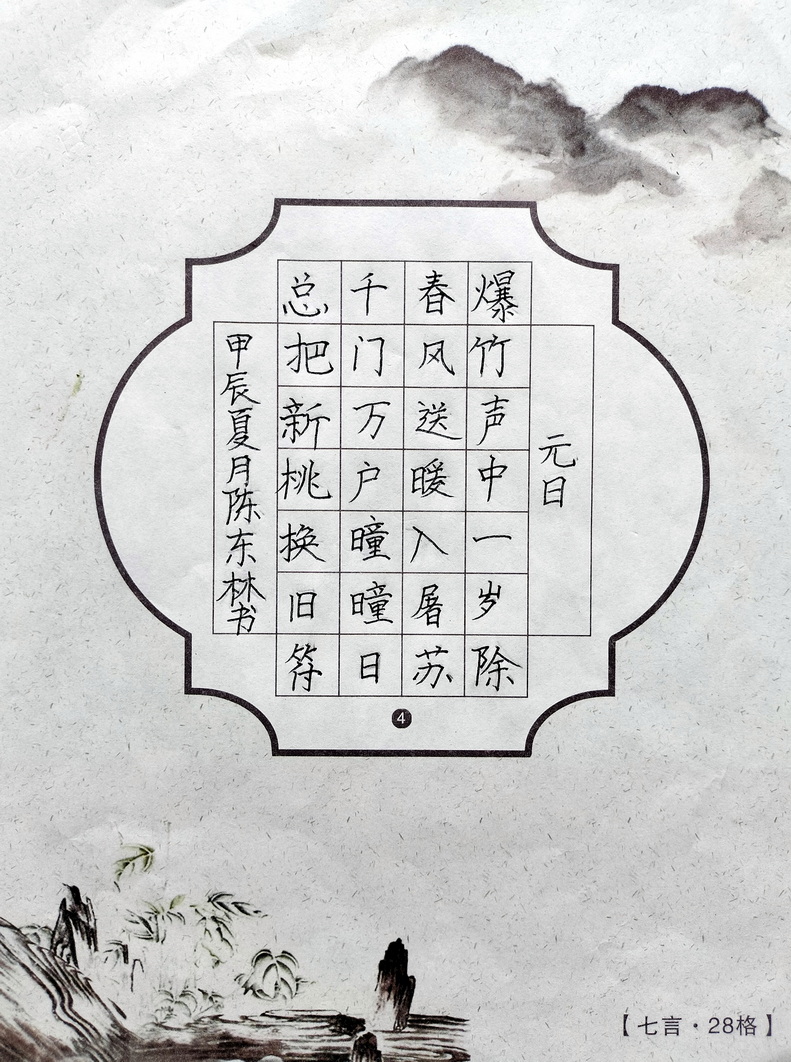 元日
爆竹声中一岁除
春风送暖入屠苏
千门万户曈曈日
总把新桃换旧符
甲辰夏月陈东林书
4
【七言·28格】